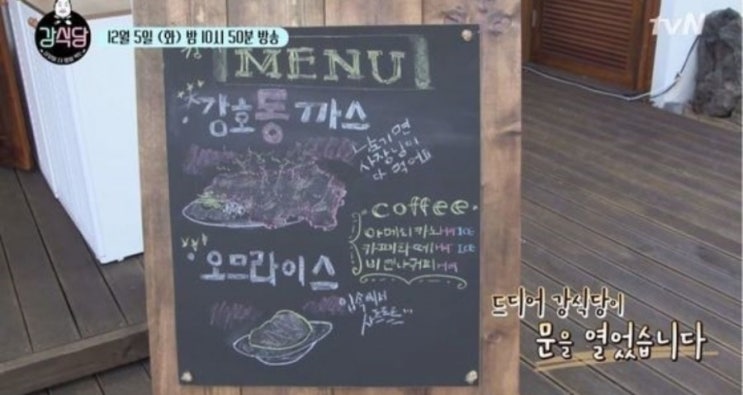 강식당
12월 5일 (화) 밤 10시 50분 방송
tvN
MENU
강호동까스
남기면
사장님이
다 먹어요
coffee
아메리카노 HOT ICE
카페라떼 HOT ICE
비엔나커피 HOT
오므라이스
입속에서
사르르르
드디어 강식당이
문을 열었습니다